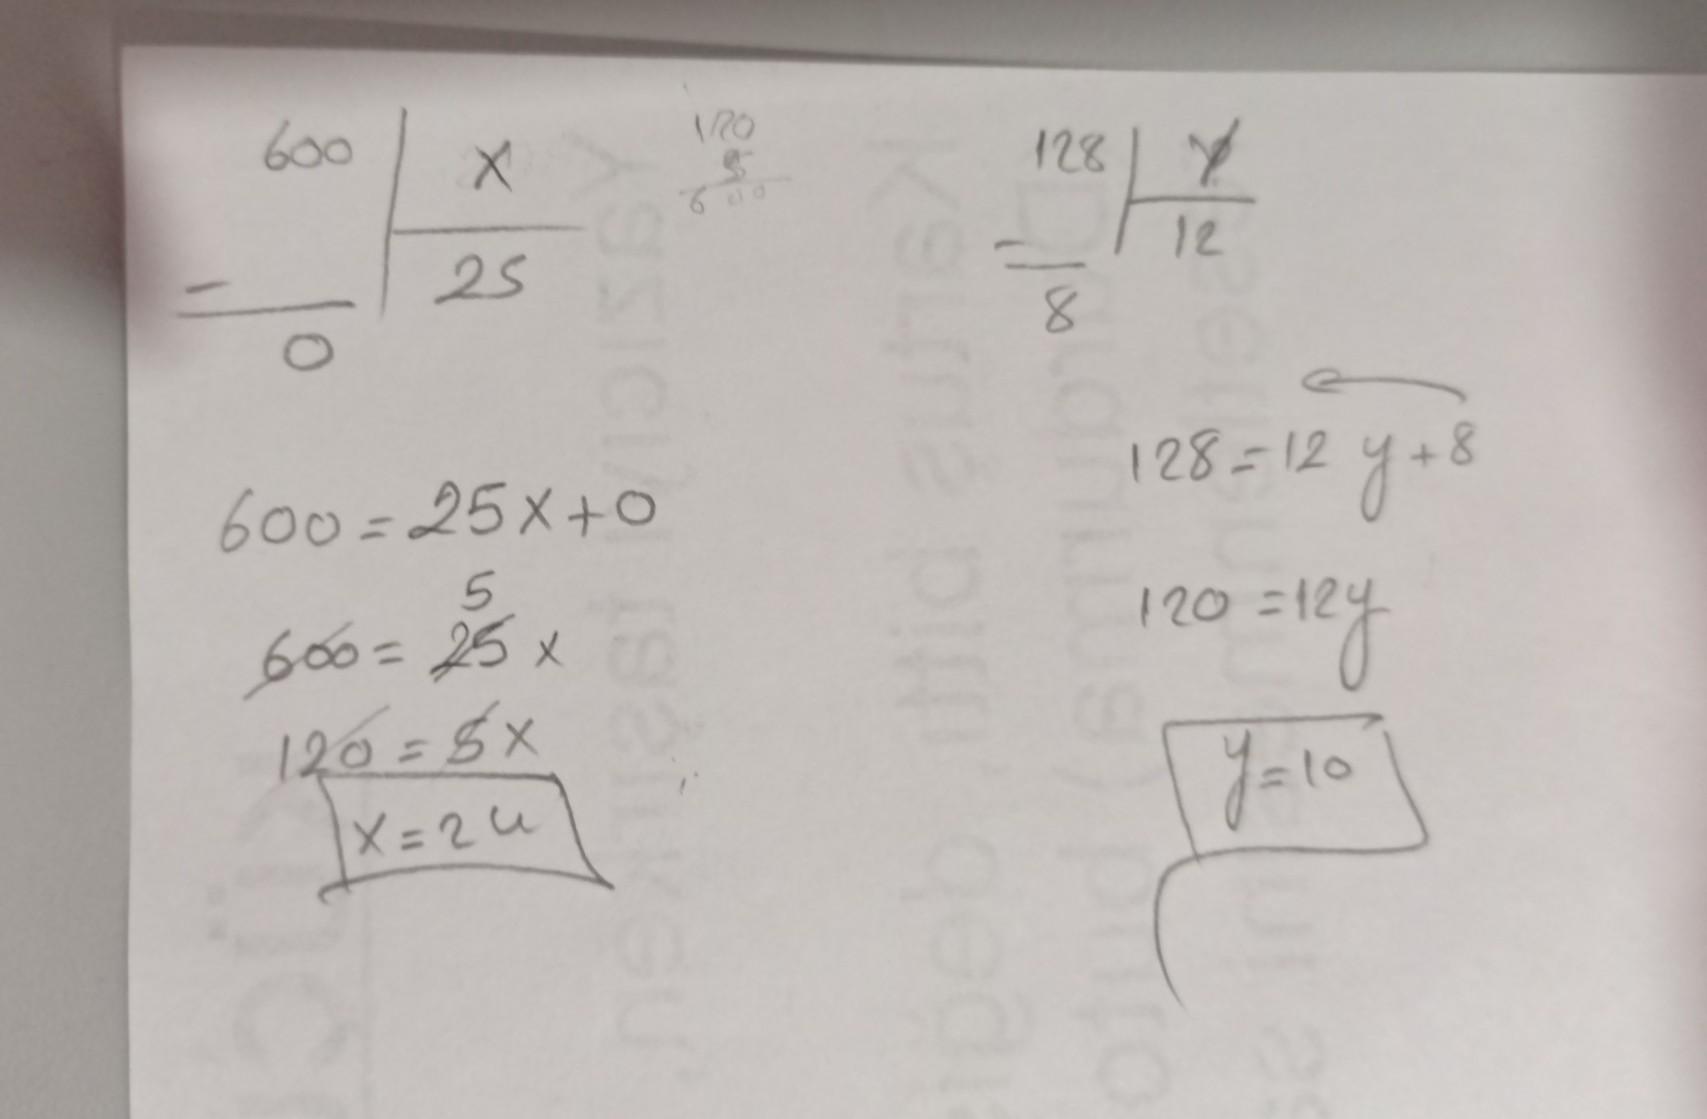 600 x
25
-
0
600 = 25x + 0
5
600 = 25 x
120 = 5x
x = 24
120
5
600
128 y
12
-
8
128 = 12 y + 8
120 = 12y
y = 10